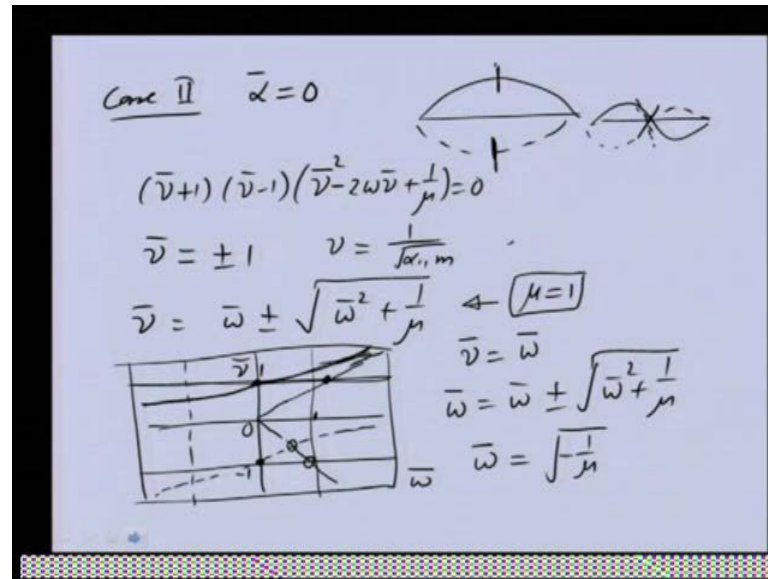 Case II ᾱ = 0
(ν̄+1) (ν̄-1) (ν̄² - 2ων̄ + 1/μ) = 0
ν̄ = ± 1 ν = 1/√(α₁₁ m)
ν̄ = ω̄ ± √(ω̄² + 1/μ) ← μ=1
ν̄ = ω̄
ω̄ = ω̄ ± √(ω̄² + 1/μ)
ω̄ = √(-1/μ)
ν̄ 1
0 1
-1
ω̄